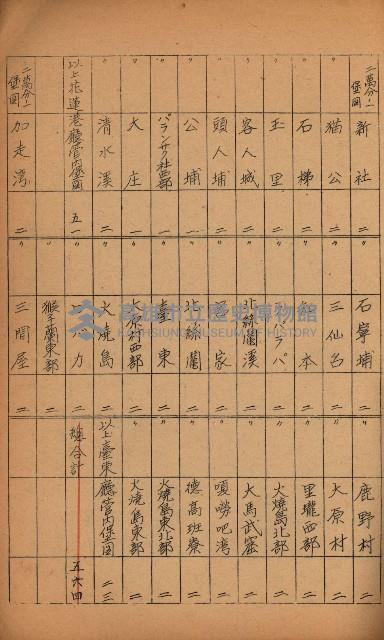 二萬分一堡圖 新社 二
〃 貓公 二
〃 石梯 二
〃 玉里 二
〃 客人城 二
〃 頭人埔 一
〃 公埔 一
〃 パランサク社西部 一
〃 大庄 一
〃 清水溪 二
以上花蓮港廳管內堡圖 五一
二萬分一堡圖 加走灣 二
〃 石寧埔 二
〃 三仙台 二
〃 本 二
〃 ラパ 二
〃 北絲鬮溪 二
〃 家 二
〃 北絲鬮 二
〃 臺東 二
〃 大原村西部 二
〃 火燒島 二
〃 力 二
〃 猴子蘭東部 二
〃 三間屋 二
〃 鹿野村 二
〃 大原村 二
〃 里壠西部 二
〃 火燒島北部 二
〃 大馬武窟 二
〃 嗄嘮吧灣 二
〃 德高班寮 二
〃 火燒島東北部 二
〃 火燒島東部 二
以上臺東廳管內堡圖 二三
總合計 五六四
高雄市立歷史博物館
KAOHSIUNG MUSEUM OF HISTORY